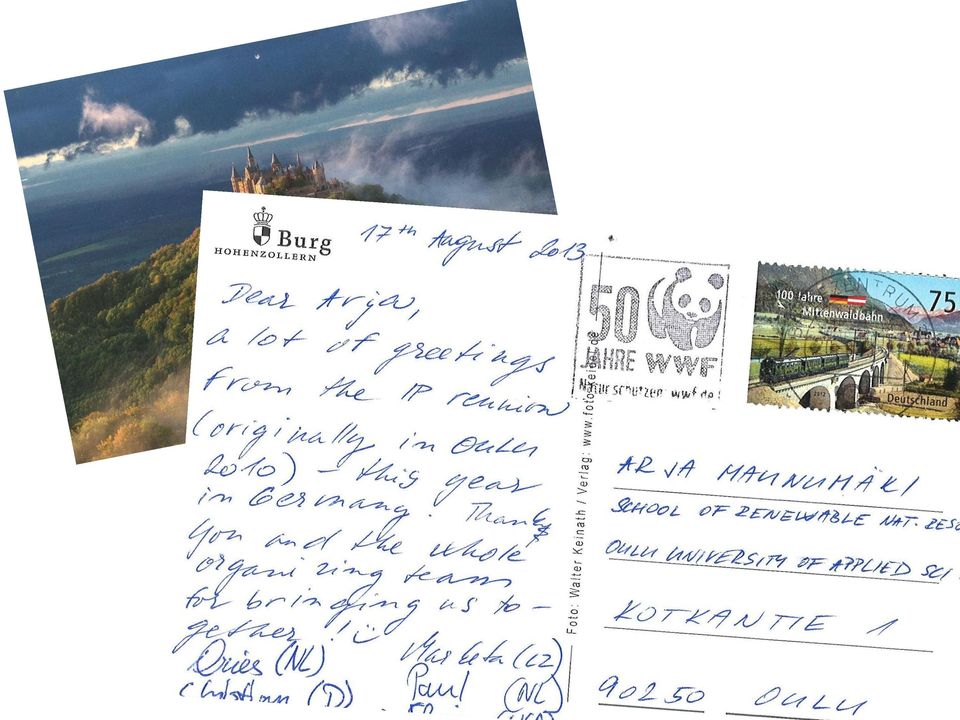 Burg
HOHENZOLLERN
17th August 2013
Dear Arja,
a lot of greetings
from the IP reunion
(originally in Oulu
2010) – this year
in Germany. Thank
you and the whole
organizing team
for bringing us to-
gether!
Dries (NL)
Marketa (CZ)
Christian (D)
Paul (NL)
Foto: Walter Keinath / Verlag: www.foto
50
JAHRE WWF
Natur schützen wwf.de!
100 Jahre
Mittenwaldbahn
75
2012
Deutschland
ARJA MAUNUMÄKI
SCHOOL OF RENEWABLE NAT. RESO
OULU UNIVERSITY OF APPLIED SCI
KOTKANTIE 1
90250 OULU